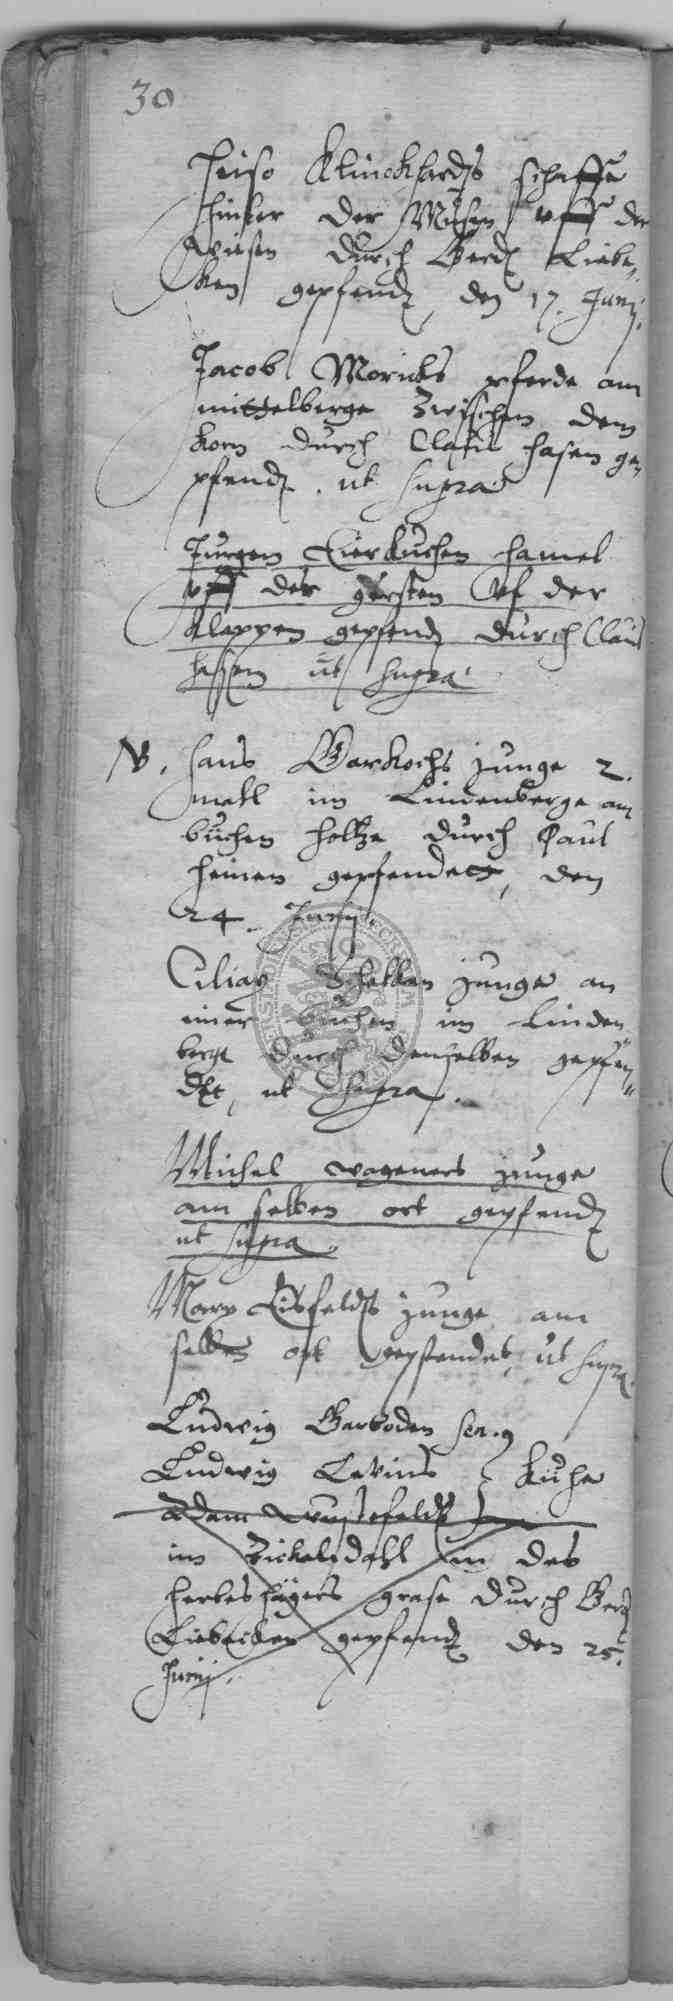 30
Heiso Klinckhardts schaffe
hinder der Mühen vff der
wiesen durch Gerdt Liebe,
ken gepfendt, den 17. Junij.
Jacob Moricks pferde am
mittelberge zwischen dem
korn durch Claus hasen ge,
pfendt. ut supra
Jurgen Eierkuchen hamel
vff der gersten vf der
klappen gepfendt durch Claus
hasen ut supra
NB. Hans Garkochs junge 2.
mahl im Lindenberge am
buchen holtze durch Paul
heinen gepfendett, den
24. Junij.
Ciliax junge an
einer buchen im Linden
berge durch denselben gepfen,
det, ut supra.
Michel wageners junge
am selben ort gepfendt
ut supra.
Marx Eisfelds junge am
selben ort gepfendet, ut supra.
Ludwig Garboden sen.
Ludwig Levins kuhe
Adam wustefeldt
im Zickelsdahl in des
grase durch Gerdt
Liebeken gepfendt den 25.
Junij.